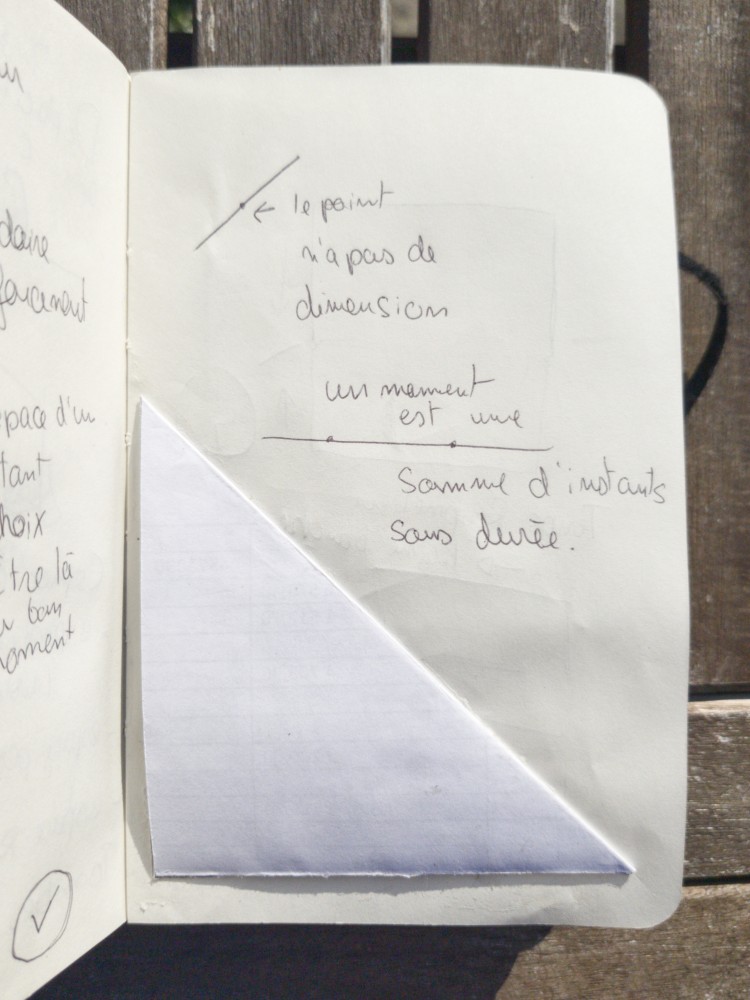 daire
forcement
pace d'un
tant
hoix
être là
bon
moment
← le point
n'a pas de
dimension
un moment
est une
somme d'instants
sans durée.